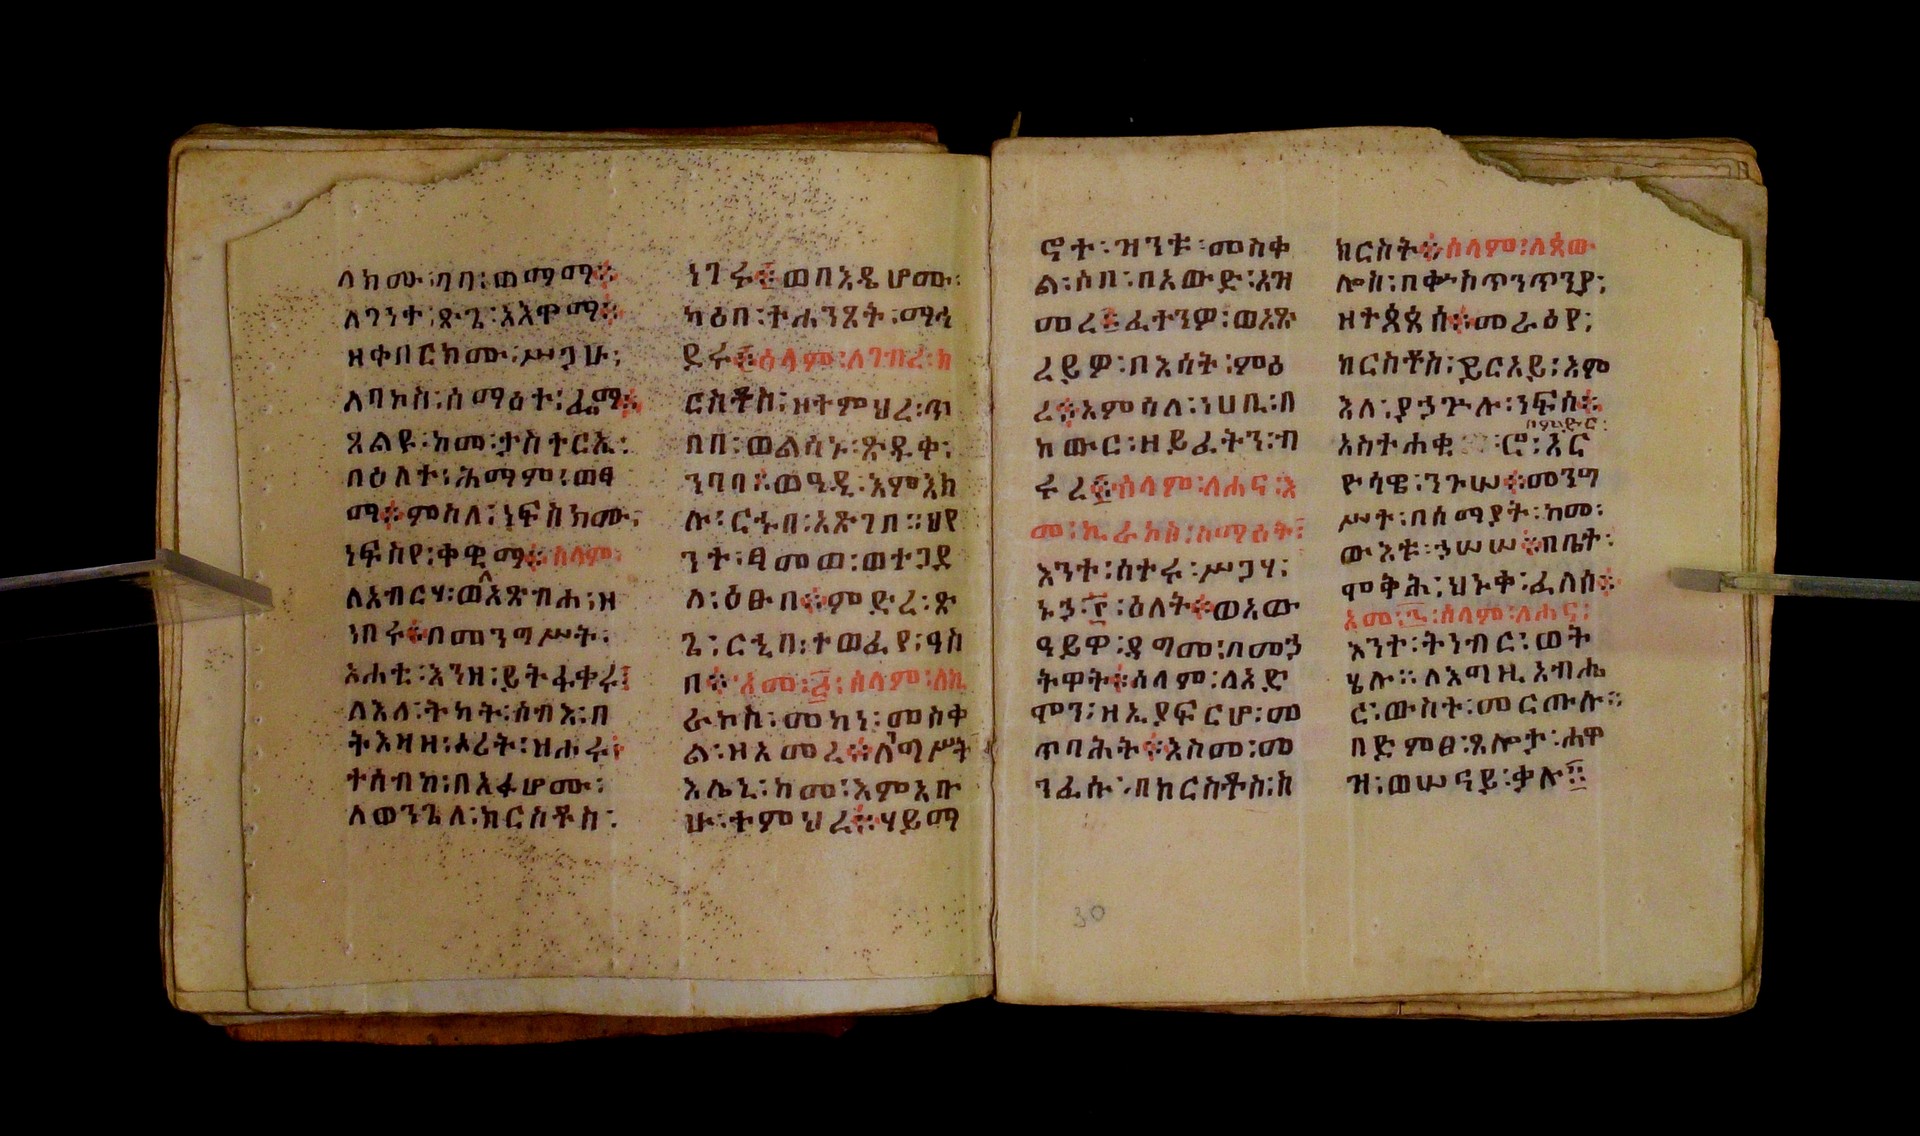 ላክሙ፡ባባ፡ወማማ፨
ለገነተ፡ጽጌ፡አእዋማ፨
ዘቀበርክሙ፡ሥጋሁ፡
ለባኮስ፡ሰማዕተ፡ፌማ፨
ጸልዩ፡ከመ፡ታስተርኢ፡
በዕለተ፡ሕማም፡ወፃ
ማ፨ምስለ፡ነፍስክሙ፡
ነፍስየ፡ቀዊማ፨ሰላም፡
ለአብርሃ፡ወአጽብሐ፡ዘ
ነበሩ፨በመንግሥት፡
አሐቲ፡እንዘ፡ይትፋቀሩ፤
ለእለ፡ትካት፡ሰብእ፡በ
ትእዛዘ፡ኦሪት፡ዝሐሩ፨
ተሰብከ፡በአፋሆሙ፡
ለወንጌለ፡ክርስቶስ፡
ነገሩ፨ወበእዴሆሙ፡
ካዕበ፡ተሐንጸት፡ማኅ
ደሩ፨ሰላም፡ለገብረ፡ክ
ርስቶስ፡ዘትምህረ፡ጥ
በበ፡ወልሳኑ፡ጽዱቀ፡
ንባባ፨ወዓዲ፡እምእክ
ሉ፡ርኁበ፡አጽገበ፡፡ህየ
ንተ፡ፃመወ፡ወተጋደ
ለ፡ዕፁበ፨ምድረ፡ጽ
ጌ፡ርኂበ፡ተወፈየ፡ዓስ
በ፨አመ፡፩፡ሰላም፡ለኪ
ራኮስ፡መከነ፡መስቀ
ል፡ዘአመረ፨ለማሥት
እሌኒ፡ከመ፡እምአቡ
ሁ፡ተምህረ፨ሃይማ
ኖተ፡ዝንቱ፡መስቀ
ል፡ሶበ፡በአውድ፡አዝ
መረ፨ፈተንዎ፡ወአጽ
ረይዎ፡በእሳት፡ምዕ
ረ፨አምሳለ፡ነሀቢ፡በ
ከውር፡ዘይፈትን፡ብ
ሩረ፨ሰላም፡ለሐና፡እ
መ፡ኪራኮስ፡ሰማዕት፡
እንተ፡ሰተሩ፡ሥጋሃ፡
ኑኃ፡፲፡ዕለት፨ወአው
ዓይዋ፡ዳግመ፡በመኃ
ትዋት፨ሰላም፡ለእድ
ሞን፡ዘኢያፍርሆ፡መ
ጥባሕት፨እስመ፡መ
ንፈሱ፡በክርስቶስ፡ክ
ክርስት፨ሰላም፡ለጳው
ሎስ፡በቍስጥንጥንያ፡
ዘተጳጳሰ፨መራዕየ፡
ክርስቶስ፡ይርአይ፡እም
እለ፡ያኃጕሉ፡ንፍሰ፨
አስተሐቂሮ፡እር
ዮሳዊ፡ንጉሠ፨መንግ
ሥት፡በሰማያት፡ከመ፡
ውእቱ፡ኃሠሠ፨በቤት፡
ሞቅሕ፡ህኑቀ፡ፈለሰ፨
አመ፡፪፡ሰላም፡ለሐና፡
እንተ፡ትንብር፡ወት
ሄሉ፡፡ለእግዚአብሔ
ር፡ውስተ፡መርጡሉ፡፡
በድምፀ፡ጸሎታ፡ሐዋ
ዝ፡ወሠናይ፡ቃሉ፨
30